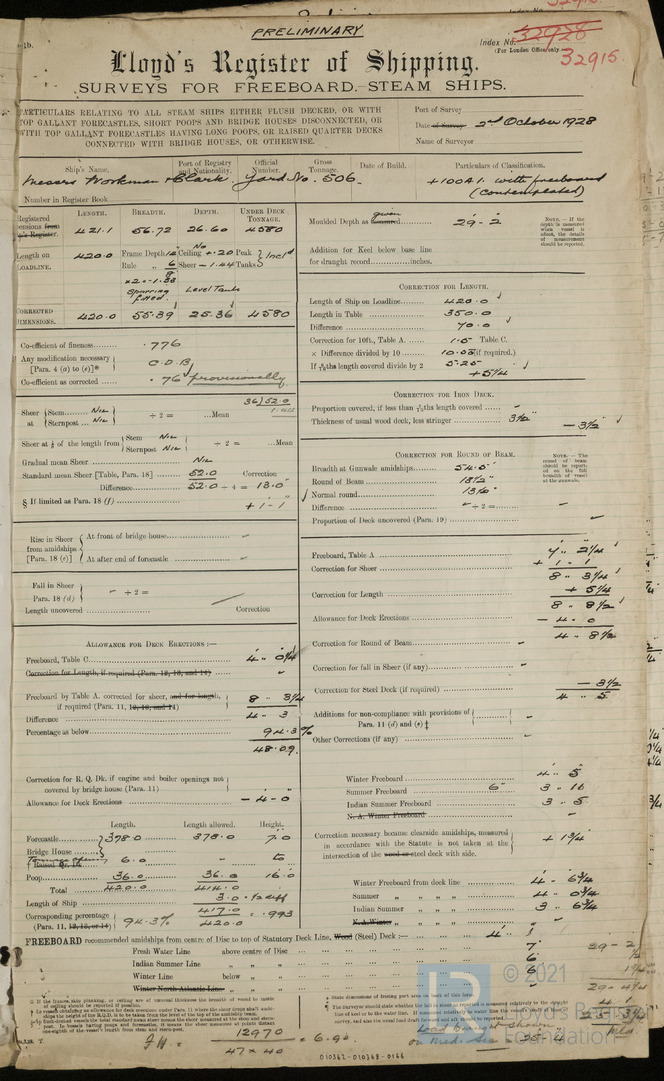 PRELIMINARY
Index No. 32928
(For London Office only)
32915.
Lloyd's Register of Shipping.
SURVEYS FOR FREEBOARD.—STEAM SHIPS.
PARTICULARS RELATING TO ALL STEAM SHIPS EITHER FLUSH DECKED, OR WITH
TOP GALLANT FORECASTLES, SHORT POOPS AND BRIDGE HOUSES DISCONNECTED, OR
WITH TOP GALLANT FORECASTLES HAVING LONG POOPS, OR RAISED QUARTER DECKS
CONNECTED WITH BRIDGE HOUSES, OR OTHERWISE.
Port of Survey
Date of Survey 2nd October 1928
Name of Surveyor
Ship's Name. Port of Registry and Nationality. Official Number. Gross Tonnage. Date of Build. Particulars of Classification.
Messrs Workman Clark. Yard No. 506. +100A1. with freeboard
(contemplated)
Number in Register Book
LENGTH. BREADTH. DEPTH. UNDER DECK TONNAGE.
Registered 421.1 56.72 26.60 4580
Length on LOADLINE. 420.0 Frame Depth 12 No Ceiling +.20 Peak
Rule 6 Sheer -1.44 Tanks Incl
Sparring fitted. Level Tanks
CORRECTED DIMENSIONS. 420.0 55.39 25.36 4580
Co-efficient of fineness .776
Any modification necessary [Para. 4 (a) to (e)]* C.D.B
Co-efficient as corrected .76 provisionally
36)52.0
Sheer at Stem Nil Sternpost Nil ÷ 2 = Mean
Sheer at ⅛ of the length from Stem Nil Sternpost Nil ÷ 2 = Mean
Gradual mean Sheer Nil
Standard mean Sheer [Table, Para. 18] 52.0 Correction
Difference 52.0 ÷ 4 = 13.0"
§ If limited as Para. 18 (f) +1-1
Rise in Sheer from amidships [Para. 18 (e)]
At front of bridge house
At after end of forecastle
Fall in Sheer Para. 18 (d) ÷ 2 =
Length uncovered Correction
ALLOWANCE FOR DECK ERECTIONS :—
Freeboard, Table C 4 .. 0¼
Correction for Length, if required (Para. 12, 13, and 14)
Freeboard by Table A. corrected for sheer, and for length, if required (Para. 11, 12, 13, and 14) 8 .. 3¼
Difference 4 .. 3
Percentage as below 94.3%
48.09.
Correction for R. Q. Dk. if engine and boiler openings not covered by bridge house (Para. 11)
Allowance for Deck Erections -4-0
Length. Length allowed. Height.
Forecastle 378.0 378.0 7.0
Bridge House
Tonnage opening 6.0 - to
Raised Qr. Dk
Poop 36.0 36.0 16.0
Total 420.0 414.0
3.0
Length of Ship 417.0 = .993
420.0
Corresponding percentage (Para. 11, 12, 13, or 14) 94.3%
Moulded Depth as given measured 29-2
NOTE.—If the depth is measured when vessel is afloat, the details of measurement should be reported.
Addition for Keel below base line
for draught record inches.
CORRECTION FOR LENGTH.
Length of Ship on Loadline 420.0
Length in Table 350.0
Difference 70.0
Correction for 10ft., Table A. 1.5 Table C.
× Difference divided by 10 10.05 (if required.)
If 6/10ths length covered divide by 2 5.25
+5¼
CORRECTION FOR IRON DECK.
Proportion covered, if less than 7/10ths length covered
Thickness of usual wood deck, less stringer 3½" -3½
CORRECTION FOR ROUND OF BEAM.
Breadth at Gunwale amidships 54.5
Round of Beam 13½"
Normal round 13⅝"
Difference ÷ 2 =
Proportion of Deck uncovered (Para. 19)
NOTE.—The round of beam should be reported on the full breadth of vessel at the gunwale.
Freeboard, Table A 7 .. 2¼
Correction for Sheer +1 .. 1
8 .. 3¼
Correction for Length +5¼
8 .. 8½
Allowance for Deck Erections -4 .. 0
4 .. 8½
Correction for Round of Beam
Correction for fall in Sheer (if any)
Correction for Steel Deck (if required) -3½
4 .. 5
Additions for non-compliance with provisions of Para. 11 (d) and (e) ‡
Other Corrections (if any)
Winter Freeboard 4 .. 5
Summer Freeboard 6" 3 .. 11
Indian Summer Freeboard 3 .. 5
N. A. Winter Freeboard
Correction necessary because clearside amidships, measured in accordance with the Statute is not taken at the intersection of the wood or steel deck with side. +1¾
Winter Freeboard from deck line 4 - 6¾
Summer " " " 4 - 0¾
Indian Summer " " " 3 .. 6¾
N.A. Winter
FREEBOARD recommended amidships from centre of Disc to top of Statutory Deck Line, Wood (Steel) Deck :—
Fresh Water Line above centre of Disc 7"
Indian Summer Line " " 6
Winter Line below " 6
Winter North Atlantic Line
29-2
29-4¼
© 2021
Lloyd's Register
Foundation
12970
47×40 = 6.90
010362-010368-0166